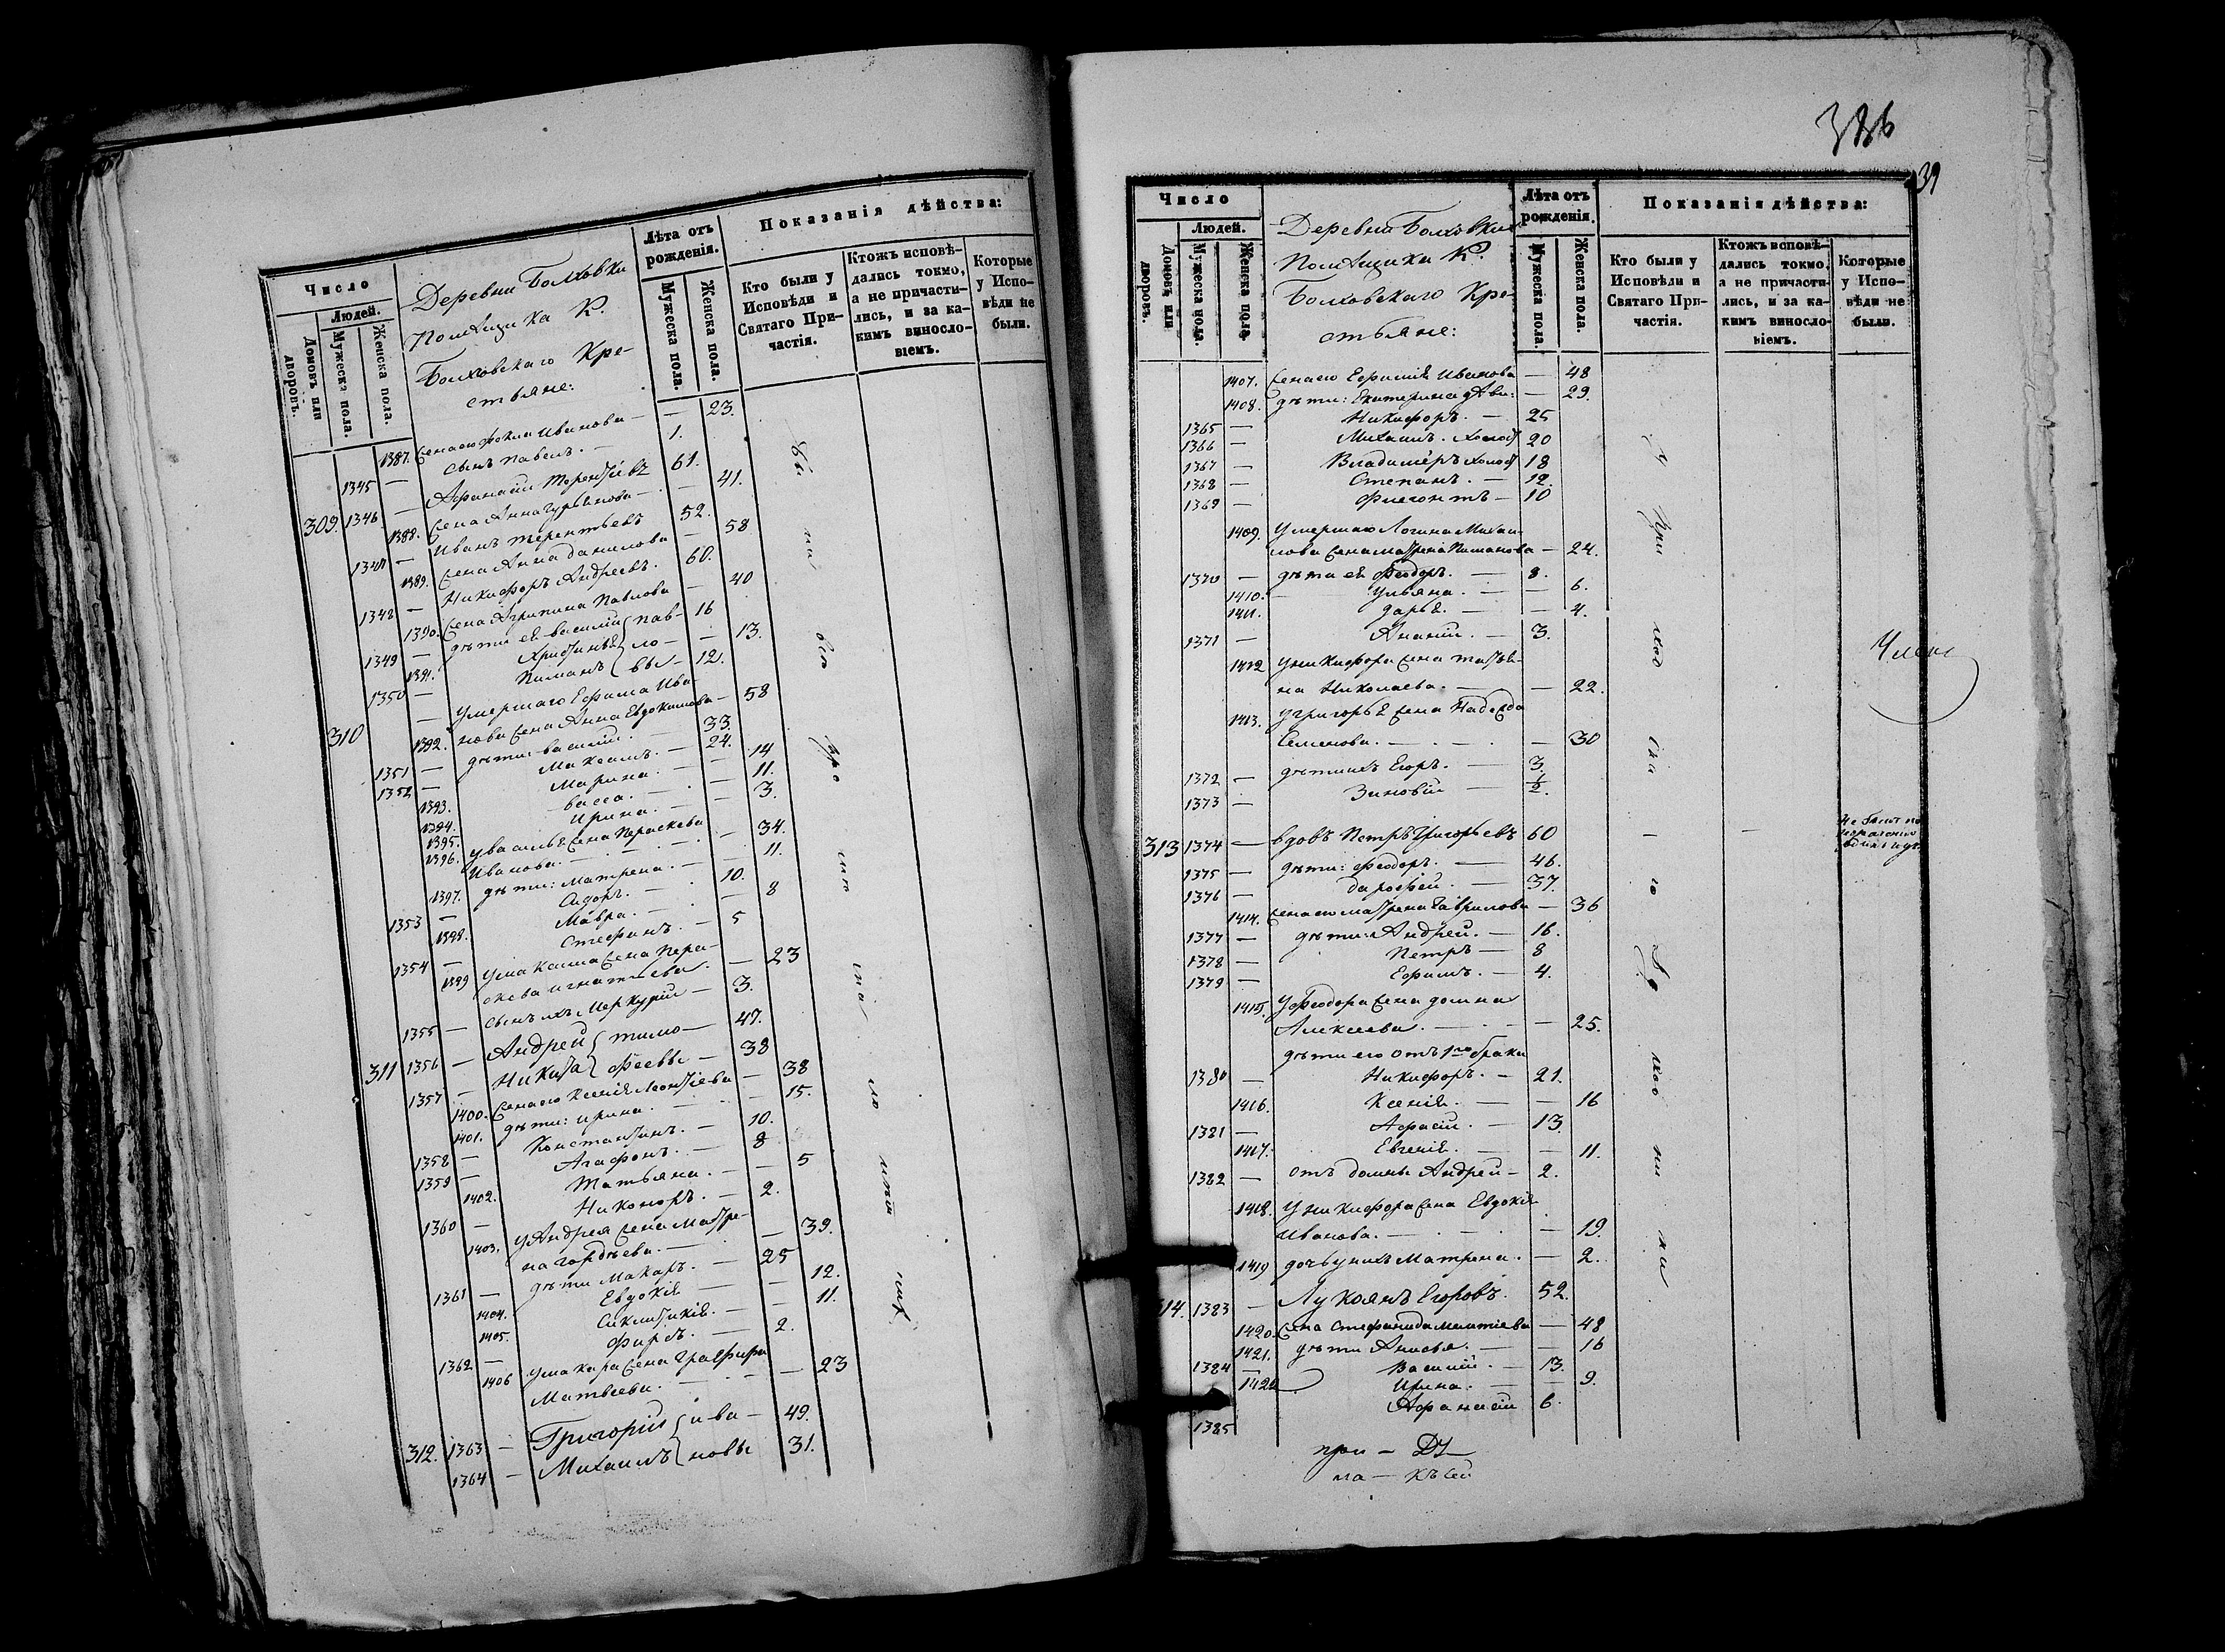 Число
Людей.
Домовъ или дворовъ.
Мужеска пола.
Женска пола.
Деревни Болховки
Помѣщика К.
Болховскаго Кре-
стьяне:
Лѣта отъ рожденія.
Мужеска пола.
Женска пола.
Показанія дѣйства:
Кто были у Исповѣди и Святаго Причастія.
Ктожъ исповѣ-
дались токмо,
а не причасти-
лись, и за ка-
кимъ винosло-
віемъ.
Которые
у Испо-
вѣди не
были.
1387. жена его Ѳекла Иванова — — 23.
1345 — сынъ Павелъ. — 1.
309. 1346. — Афанасій Терентіевъ 61.
1388. жена Анна Гурьянова — — 41.
1347 — Иванъ Терентьевъ 52.
1389. жена Анна Данилова — 58
1348 — Никифоръ Андреевъ. 60.
1390. жена Агрипина Павлова — 40
1349 — дѣти ея Василій пав- 16
1391. Христинья ло- — 13.
1350 — Пиманъ вы — 12.
310 — Умершаго Ефима Ива-
1392. нова жена Анна Евдокимова — 58
1351 — дѣти Василій. — 33.
1352 — Максимъ. — 24.
1393. Марина. — — 14
1394. Васса. — — 11.
1395. Ирина. — — 3.
1396. у Василья жена Параскева
Иванова. — — 34.
1397. дѣти: Матрена. — — 11.
1353 — Сидоръ. — 10.
1398. Мавра. — — 8
1354 — Стефанъ. — 5
1399 у Максима жена Пара-
скева Игнатьева. — 23
1355 — сынъ ихъ Меркурій — 3.
311 1356 — Андрей тимо- 47.
1357 — Никита феевы — 38
1400. жена его Ксенія Леонтіева — 38
1401. дѣти: Ирина. — — 15.
1358 — Константинъ. — 10.
1359 — Агафонъ. — 8
1402. Татьяна. — — 5
1360 — Никоноръ. — 2.
1403. у Андрея жена Матре-
на Гордѣева. — — 39.
1361 — дѣти Макаръ. — 25
1404. Евдокія — — 12.
1405. Синклитикія. — — 11.
1362 — Фирсъ. — 2.
1406 у Макара жена Глафира
Матвѣева. — — 23
312. 1363 — Григорій ива- 49.
1364 — Михаилъ новы 31.
386
39
Число
Людей.
Домовъ или дворовъ.
Мужеска пола.
Женска пола.
Деревни Болховки
Помѣщика К.
Болховскаго Кре-
стьяне:
Лѣта отъ рожденія.
Мужеска пола.
Женска пола.
Показанія дѣйства:
Кто были у
Исповѣди и
Святаго При-
частія.
Ктожъ исповѣ-
дались токмо,
а не причасти-
лись, и за ка-
кимъ виносло-
віемъ.
Которые
у Испо-
вѣди не
были.
1407. жена его Ефимія Иванова — 48
1408. дѣти: Екатерина — 29.
1365 — Никифоръ. — 25
1366 — Михаилъ. Холост 20
1367 — Владимеръ Холост 18
1368 — Степанъ. — 12.
1369 — Флегонтъ — 10
1409. Умершаго Логина Михаи-
лова жена Матрена Пиманова — 24.
1370 — дѣти ея Ѳеодоръ. — 8.
1410. — Ульяна. — — 6.
1411. Дарья. — — 4.
1371 — Ананій. — 3.
1412 у Никифора жена Татья-
на Николаева. — — 22.
1413. у Григорья жена Надежда
Семенова. — — 30
1372 — дѣти ихъ Егоръ. — 3.
1373 — Зиновій — ½.
313 1374 — вдовъ Петръ Григорьевъ 60
1375 — дѣти: Ѳеодоръ. — 46.
1376 — Дарофей. — 37.
1414. жена его Матрена Гаврилова — 36
1377 — дѣти: Андрей. — 16.
1378 — Петръ — 8
1379 — Ефимъ. — 4.
1415. у Ѳеодора жена Домна
Алексеева. — — 25.
дѣти его отъ 1го брака
1380 — Никифоръ. — 21.
1416. Ксенія. — — 16
1381 — Афасій. — 13.
1417. Евгенія. — — 11.
1382 — отъ Домны Андрей — 2.
1418. у Никифора жена Евдокія
Иванова. — — 19.
1419 дочь у нихъ Матрена. — 2.
314. 1383 — Лукоянъ Егоровъ. 52.
1420. жена Стефанида Мелитіева — 48
1421. дѣти Анисья. — — 16
1384 — Василій. — 13.
1422 Ирина. — — 9.
1385 Афанасій 6.